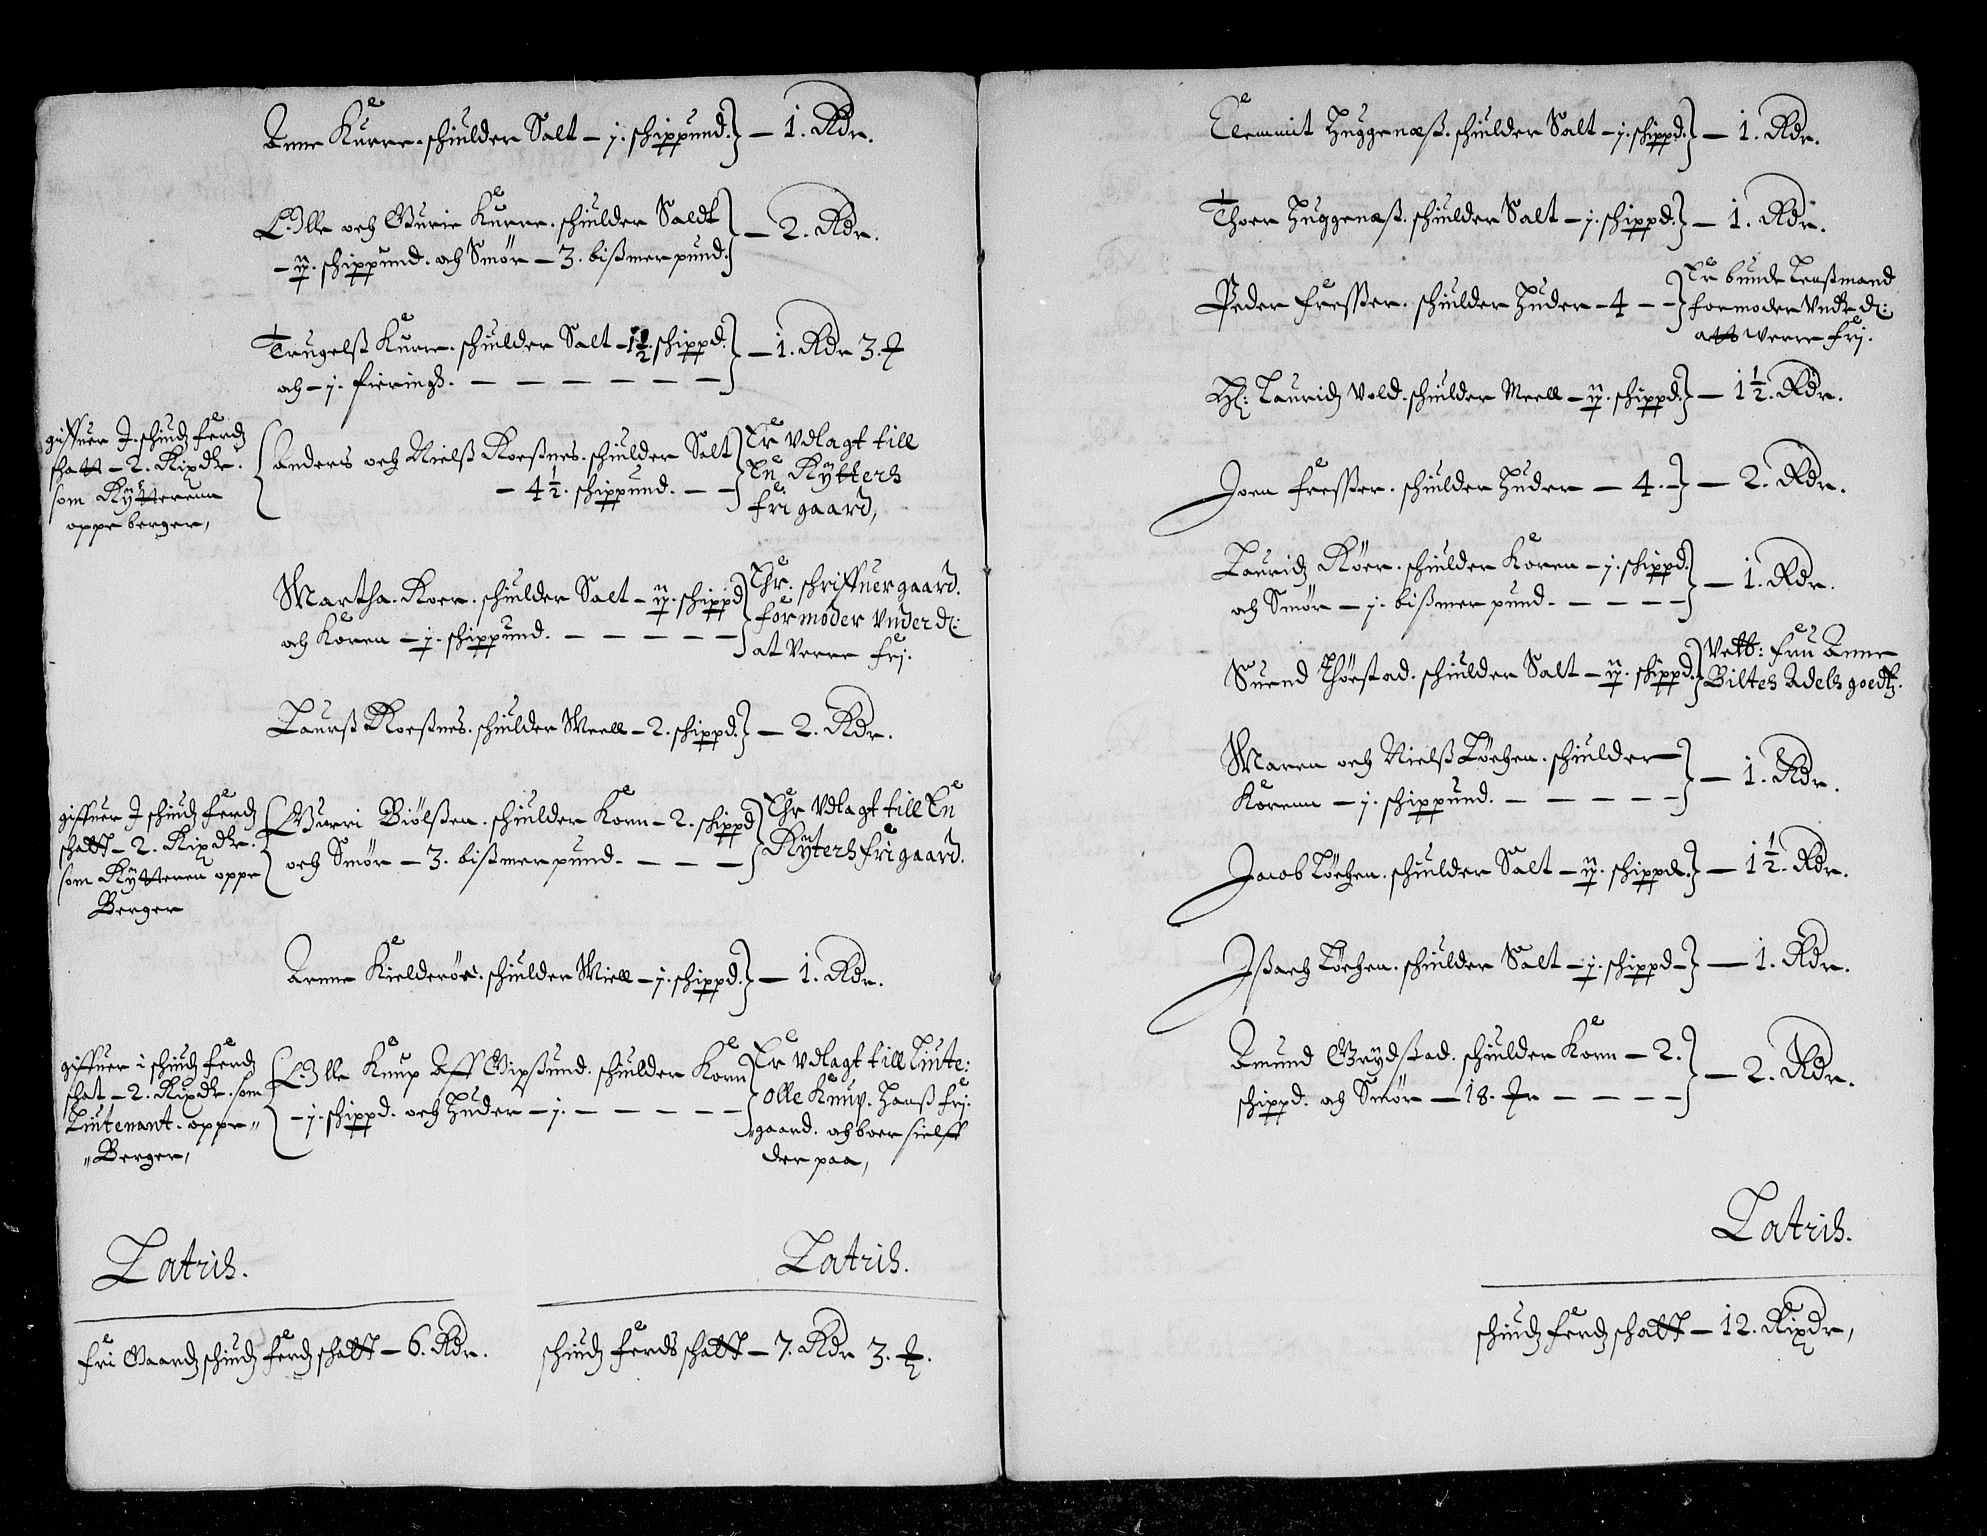 Anne Kurre. schiulder Salt – j. schippund. } – 1. Rdr.
Olle och Gurie Kurre. schiulder Saldt } – 2. Rdr.
– ij. schippund. och Smör – 3. bißmer pund.
Trugelß Kurre. schiulder Salt – 1½. schippd. } – 1. Rdr 3.
och – j. fieringh. – – – – – –
giffuer J. schiudz ferdz
schatt – 2. Rixdr.
som Rÿtteren
oppe berger,
Anders och Nielß Roeßnes. schiulder Salt
– 4½. schippund. – –
Er Vdlagt till
En Rÿtters
fri gaard,
Martha. Roer. schiulder Salt – ij. schippd
och Koren – j. schippund. – – – – –
Ehr. schriffuer gaard.
formoder Vnder d:
at Verre frj.
Laurß Roeßnes. schiulder Meell – 2. schippd. } – 2. Rdr.
giffuer J schiudz ferdz
schatt – 2. Rixdr.
som Rÿtteren oppe
Berger
Gurri Biölßen. schiulder Korn – 2. schippd
och Smör – 3. bißmer pund. – – –
Ehr Vdlagt till En
Rÿters fri gaard.
Anne Kielderöe. schiulder Miell – j. schippd. } – 1. Rdr.
giffuer i schiudz ferdz
schat – 2. Rixdr. som
Liutenant. oppe"
"Berger,
Olle Knup Aff Gipßund. schiulder Korn
– j. schippd. och Huder – j. – – – – –
Er Vdlagt till Liute:
Olle Knup. Hanß frj.
"gaard. och boer sielff
der paa,
Latris.
Latris.
fri Gaardz schiudz ferdz schatt – 6. Rdr.
schiudz ferds schatt – 7. Rdr 3.
Clemmit Huggenæß. schiulder Salt – j. schippd } – 1. Rdr.
Thoer Huggenæß. schiulder Salt – j. schippd. } – 1. Rdr.
Peder fresser. schiulder Huder – 4 – –
Er bunde Lenßmand
formoder Vnder d:
att Verre frj.
H: Lauridz Vold. schiulder Meell – ij. schippd. } – 1½. Rdr.
Joen fresser. schiulder Huder – 4. – } – 2. Rdr.
Lauridz Röer. schiulder Koren – j. schippd. } – 1. Rdr.
och Smör – j. bißmer pund. – – – –
Suend Thöestad. schiulder Salt – ij. schippd.
Velb: fru Anne
Biltes Adels goedtz.
Maren och Nielß Löchen. schiulder } – 1. Rdr.
Korenn – j. schippund. – – – – –
Jacob Löchen. schiulder Salt – ij. schippd. } – 1½. Rdr.
Jßach Löchen. schiulder Salt – j. schippd – } – 1. Rdr.
Amund Grÿdstad. schiulder Korn – 2. } – 2. Rdr.
schippd. och Smör – 18. – – – –
Latris.
schiudz ferdz schatt – 12. Rixdr,